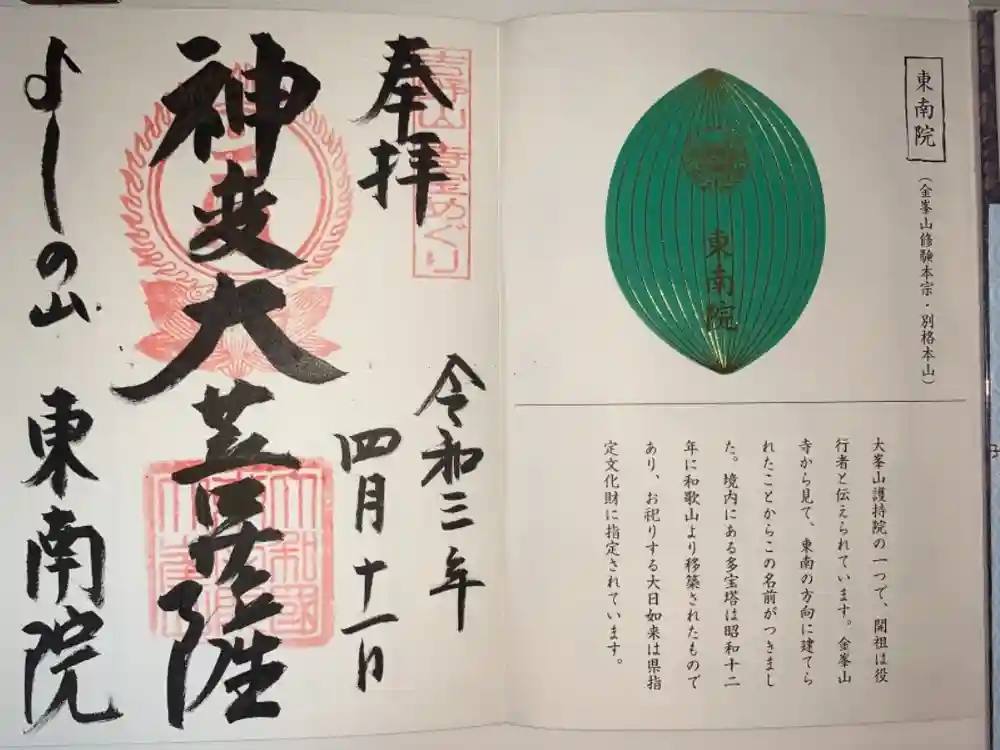 東南院
（金峯山修験本宗・別格本山）
東南院
大峯山護持院の一つで、開祖は役
行者と伝えられています。金峯山
寺から見て、東南の方向に建てら
れたことからこの名前がつきまし
た。境内にある多宝塔は昭和十二
年に和歌山より移築されたもので
あり、お祀りする大日如来は県指
定文化財に指定されています。
吉野山 寺宝めぐり
奉拝
令和三年
四月十一日
神変大菩薩
よしの山 東南院